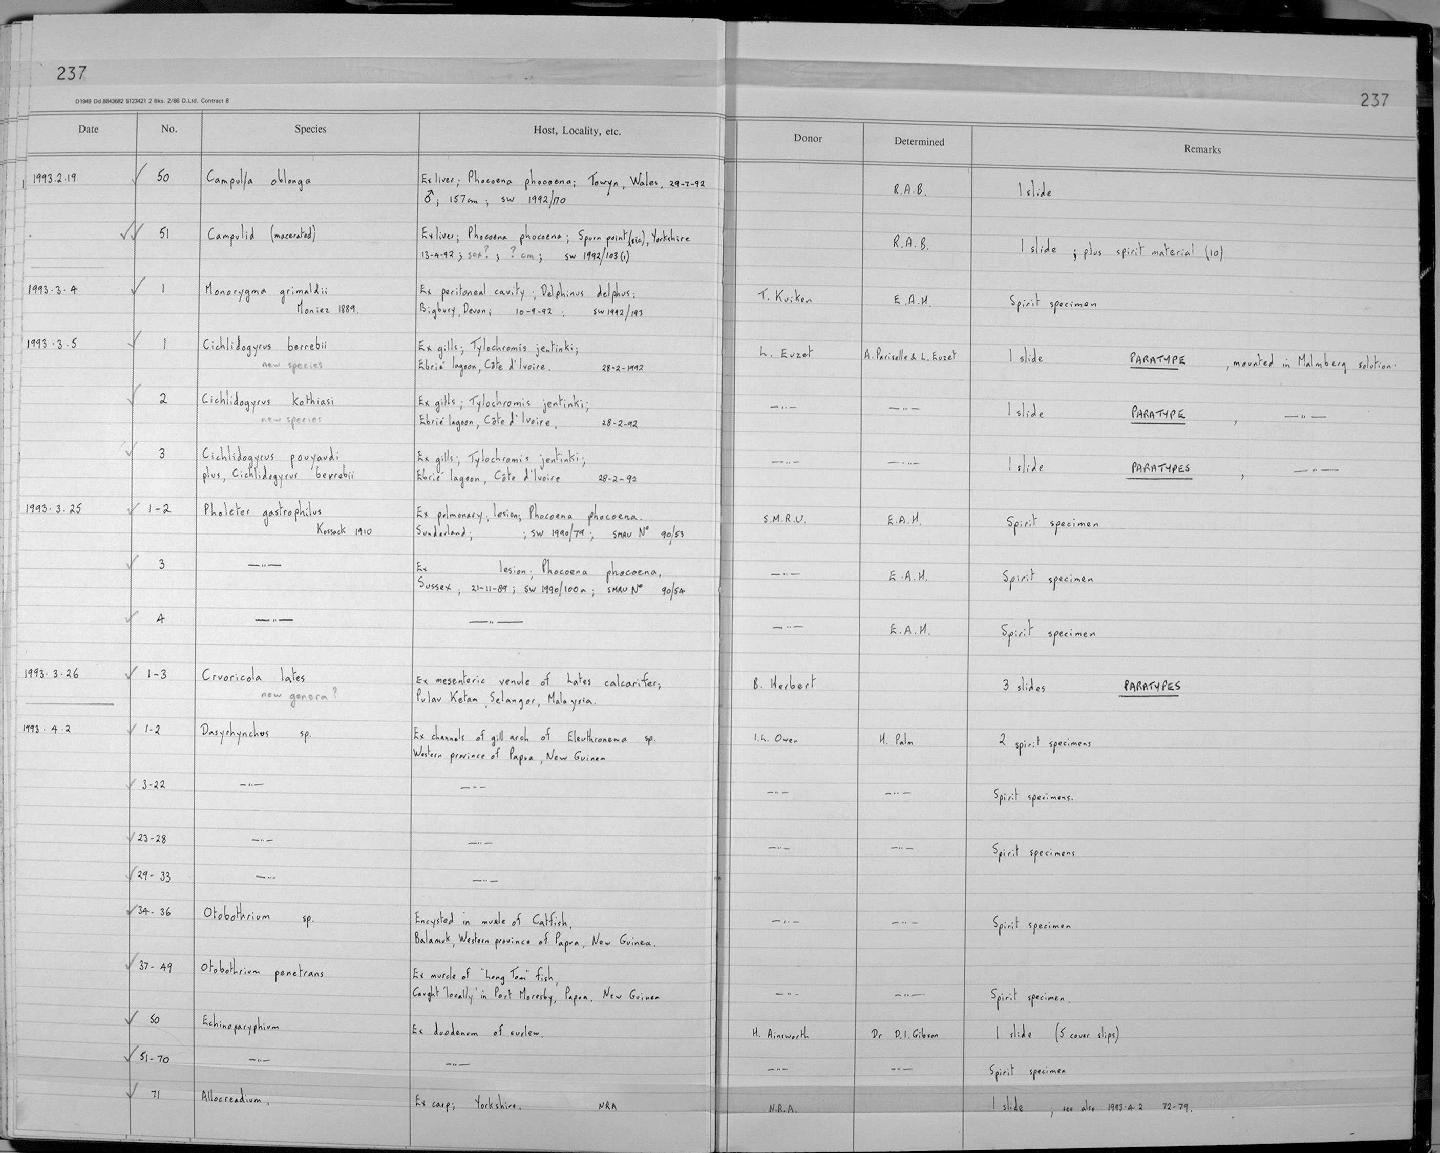 237
237
D1949 Dd.8843682 8123421 2 Bks. 2/86 D.Ltd. Contract 8
Date No. Species Host, Locality, etc. Donor Determined Remarks
1993.2.19 50 Campula oblonga Ex liver; Phocoena phocoena; Towyn, Wales, 29-7-92 R.A.B. 1 slide
♂; 157cm; SW 1992/170
51 Campulid (macerated) Ex liver; Phocoena phocoena; Spurn point (sic), Yorkshire R.A.B. 1 slide ; plus spirit material (10)
13-4-92; sex?; ? cm; SW 1992/103(1)
1993.3.4 1 Monorygma grimaldii Ex peritoneal cavity; Delphinus delphus; T. Kuiken E.A.H. Spirit specimen
Moniez 1889. Bigbury, Devon; 10-9-92; SW1992/193
1993.3.5 1 Cichlidogyrus berrebii Ex gills; Tylochromis jentinki; L. Euzet A. Pariselle & L. Euzet 1 slide PARATYPE, mounted in Malmberg solution.
new species Ebrié lagoon, Côte d'Ivoire. 28-2-1992
2 Cichlidogyrus kothiasi Ex gills; Tylochromis jentinki; —"— —"— 1 slide PARATYPE, —"—
new species Ebrié lagoon, Côte d'Ivoire, 28-2-92
3 Cichlidogyrus pouyaudi Ex gills; Tylochromis jentinki; —"— —"— 1 slide PARATYPES, —"—
plus, Cichlidogyrus berrebii Ebrié lagoon, Côte d'Ivoire 28-2-92
1993.3.25 1-2 Pholeter gastrophilus Ex pulmonary; lesion; Phocoena phocoena. S.M.R.U. E.A.H. Spirit specimen
Kossack 1910 Sunderland; ; SW 1990/79; SMRU No 90/53
3 —"— Ex lesion; Phocoena phocoena, —"— E.A.H. Spirit specimen
Sussex, 21-11-89; SW 1990/100a; SMRU No 90/54
4 —"— —"— —"— E.A.H. Spirit specimen
1993.3.26 1-3 Cruoricola lates Ex mesenteric venule of Lates calcarifer; B. Herbert 3 slides PARATYPES
new genera? Pulau Ketam, Selangor, Malaysia.
1993.4.2 1-2 Dasyrhynchus sp. Ex channels of gill arch of Eleuthronema sp. I.L. Owen H. Palm 2 spirit specimens
Western province of Papua, New Guinea
3-22 —"— —"— —"— —"— Spirit specimens.
23-28 —"— —"— —"— —"— Spirit specimens
29-33 —"— —"—
34-36 Otobothrium sp. Encysted in muscle of Catfish, —"— —"— Spirit specimen
Balamuk, Western province of Papua, New Guinea.
37-49 Otobothrium penetrans Ex muscle of "Long Tom" fish,
Caught 'locally' in Port Moresby, Papua, New Guinea —"— —"— Spirit specimen.
50 Echinoparyphium Ex duodenum of curlew. H. Ainsworth Dr D.I. Gibson 1 slide (5 cover slips)
51-70 —"— —"— —"— —"— Spirit specimen
71 Allocreadium. Ex carp; Yorkshire. NRA N.R.A. 1 slide, see also 1993.4.2 72-79.